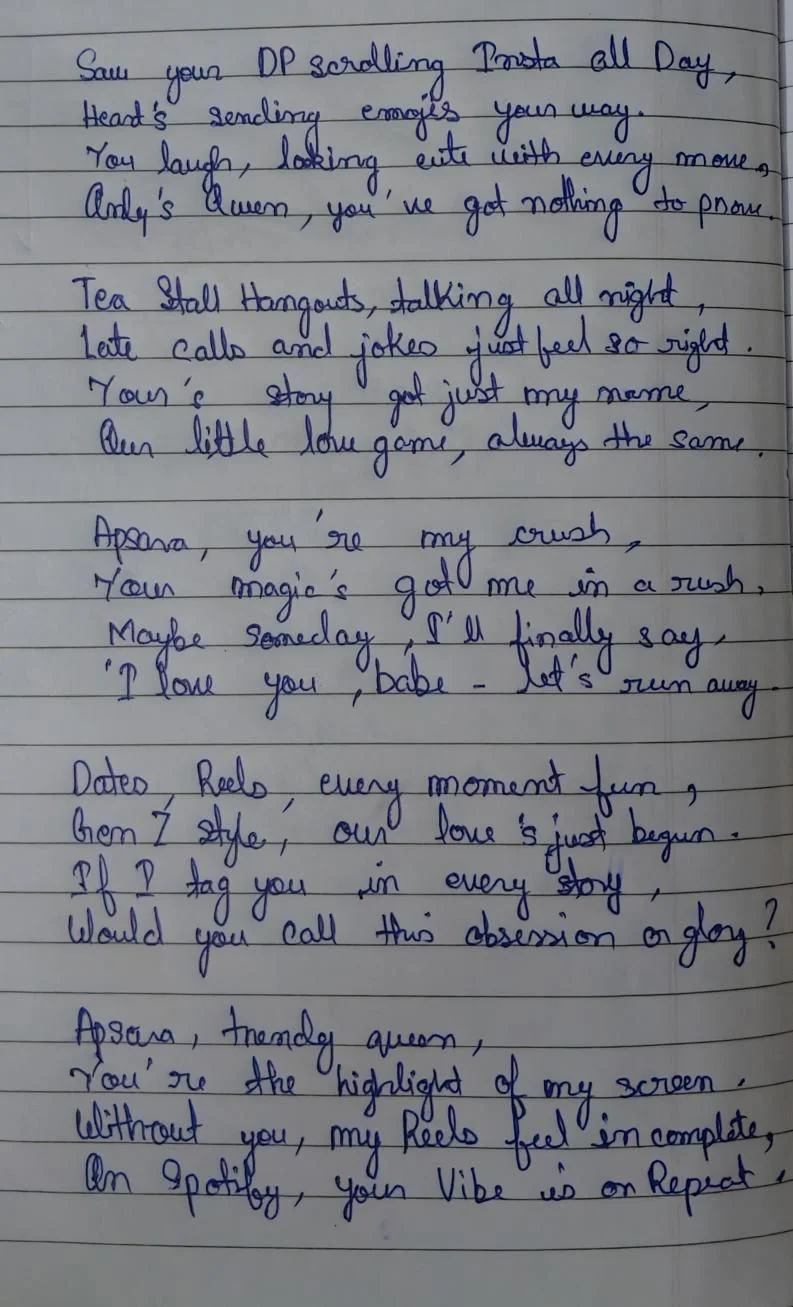 Saw your DP scrolling Insta all Day,
Heart's sending emojis your way.
You laugh, looking cute with every move,
Andy's Queen, you've got nothing to prove.
Tea Stall Hangouts, talking all night,
Late calls and jokes just feel so right.
Your's story got just my name,
Our little love game, always the same.
Apsara, you're my crush,
Your magic's got me in a rush,
Maybe someday, I'll finally say,
'I love you, babe - let's run away.
Dates, Reels, every moment fun,
Gen Z style, our love's just begun.
If I tag you in every story,
Would you call this obsession or glory?
Apsara, trendy queen,
You're the highlight of my screen.
Without you, my Reels feel incomplete,
On Spotifoy, your Vibe is on Repeat.